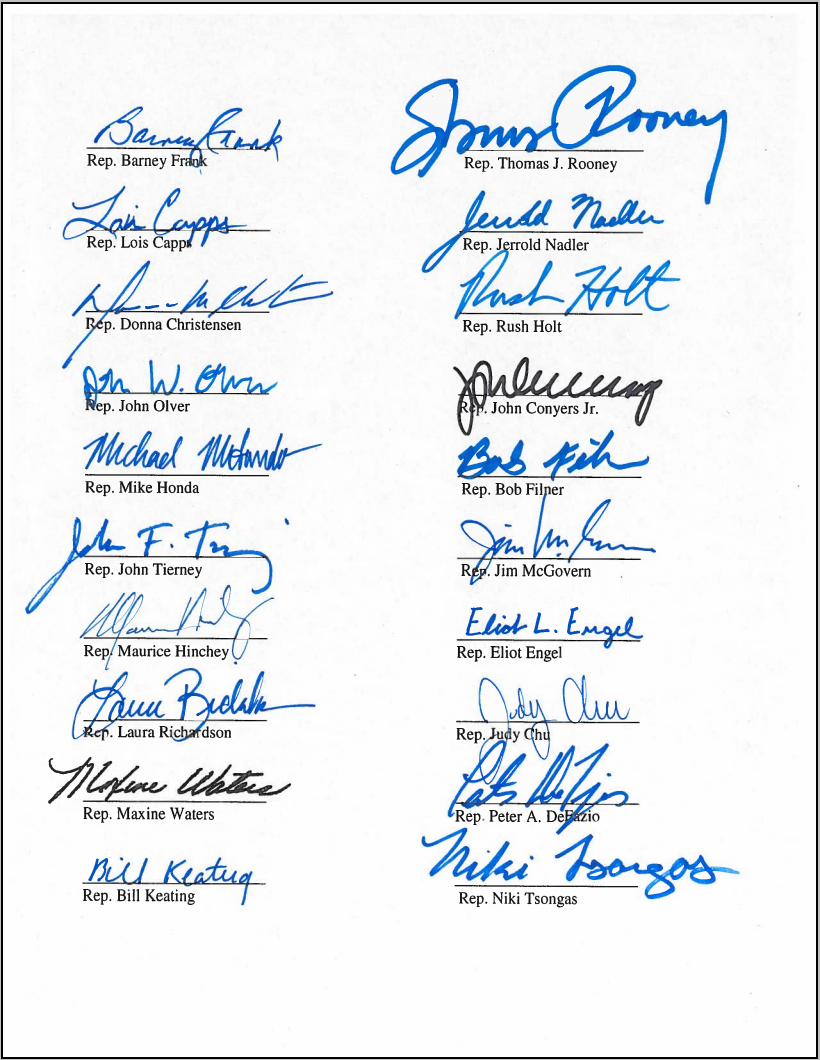 Barney Frank
Rep. Barney Frank
Thomas Rooney
Rep. Thomas J. Rooney
Lois Capps
Rep. Lois Capps
Jerrold Nadler
Rep. Jerrold Nadler
Rep. Donna Christensen
Rush Holt
Rep. Rush Holt
John W. Olver
Rep. John Olver
Rep. John Conyers Jr.
Michael M Honda
Rep. Mike Honda
Bob Filner
Rep. Bob Filner
John F.
Rep. John Tierney
Jim McGovern
Rep. Jim McGovern
Rep. Maurice Hinchey
Eliot L. Engel
Rep. Eliot Engel
Laura Richardson
Rep. Laura Richardson
Judy Chu
Rep. Judy Chu
Maxine Waters
Rep. Maxine Waters
Rep. Peter A. DeFazio
Bill Keating
Rep. Bill Keating
Niki Tsongas
Rep. Niki Tsongas